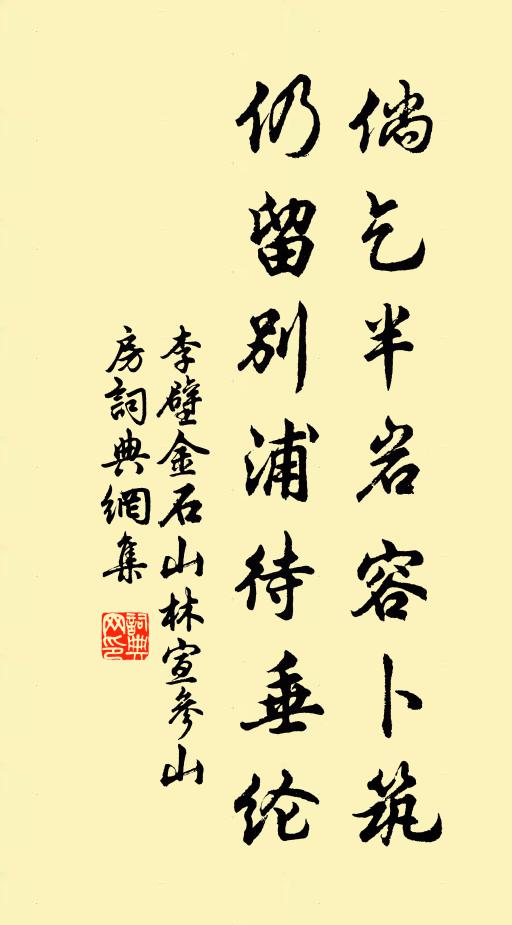 倘乞半岩容卜筑
仍留别浦待垂纶
李壁金石山林宣参山
房詞典網集
詞典网印